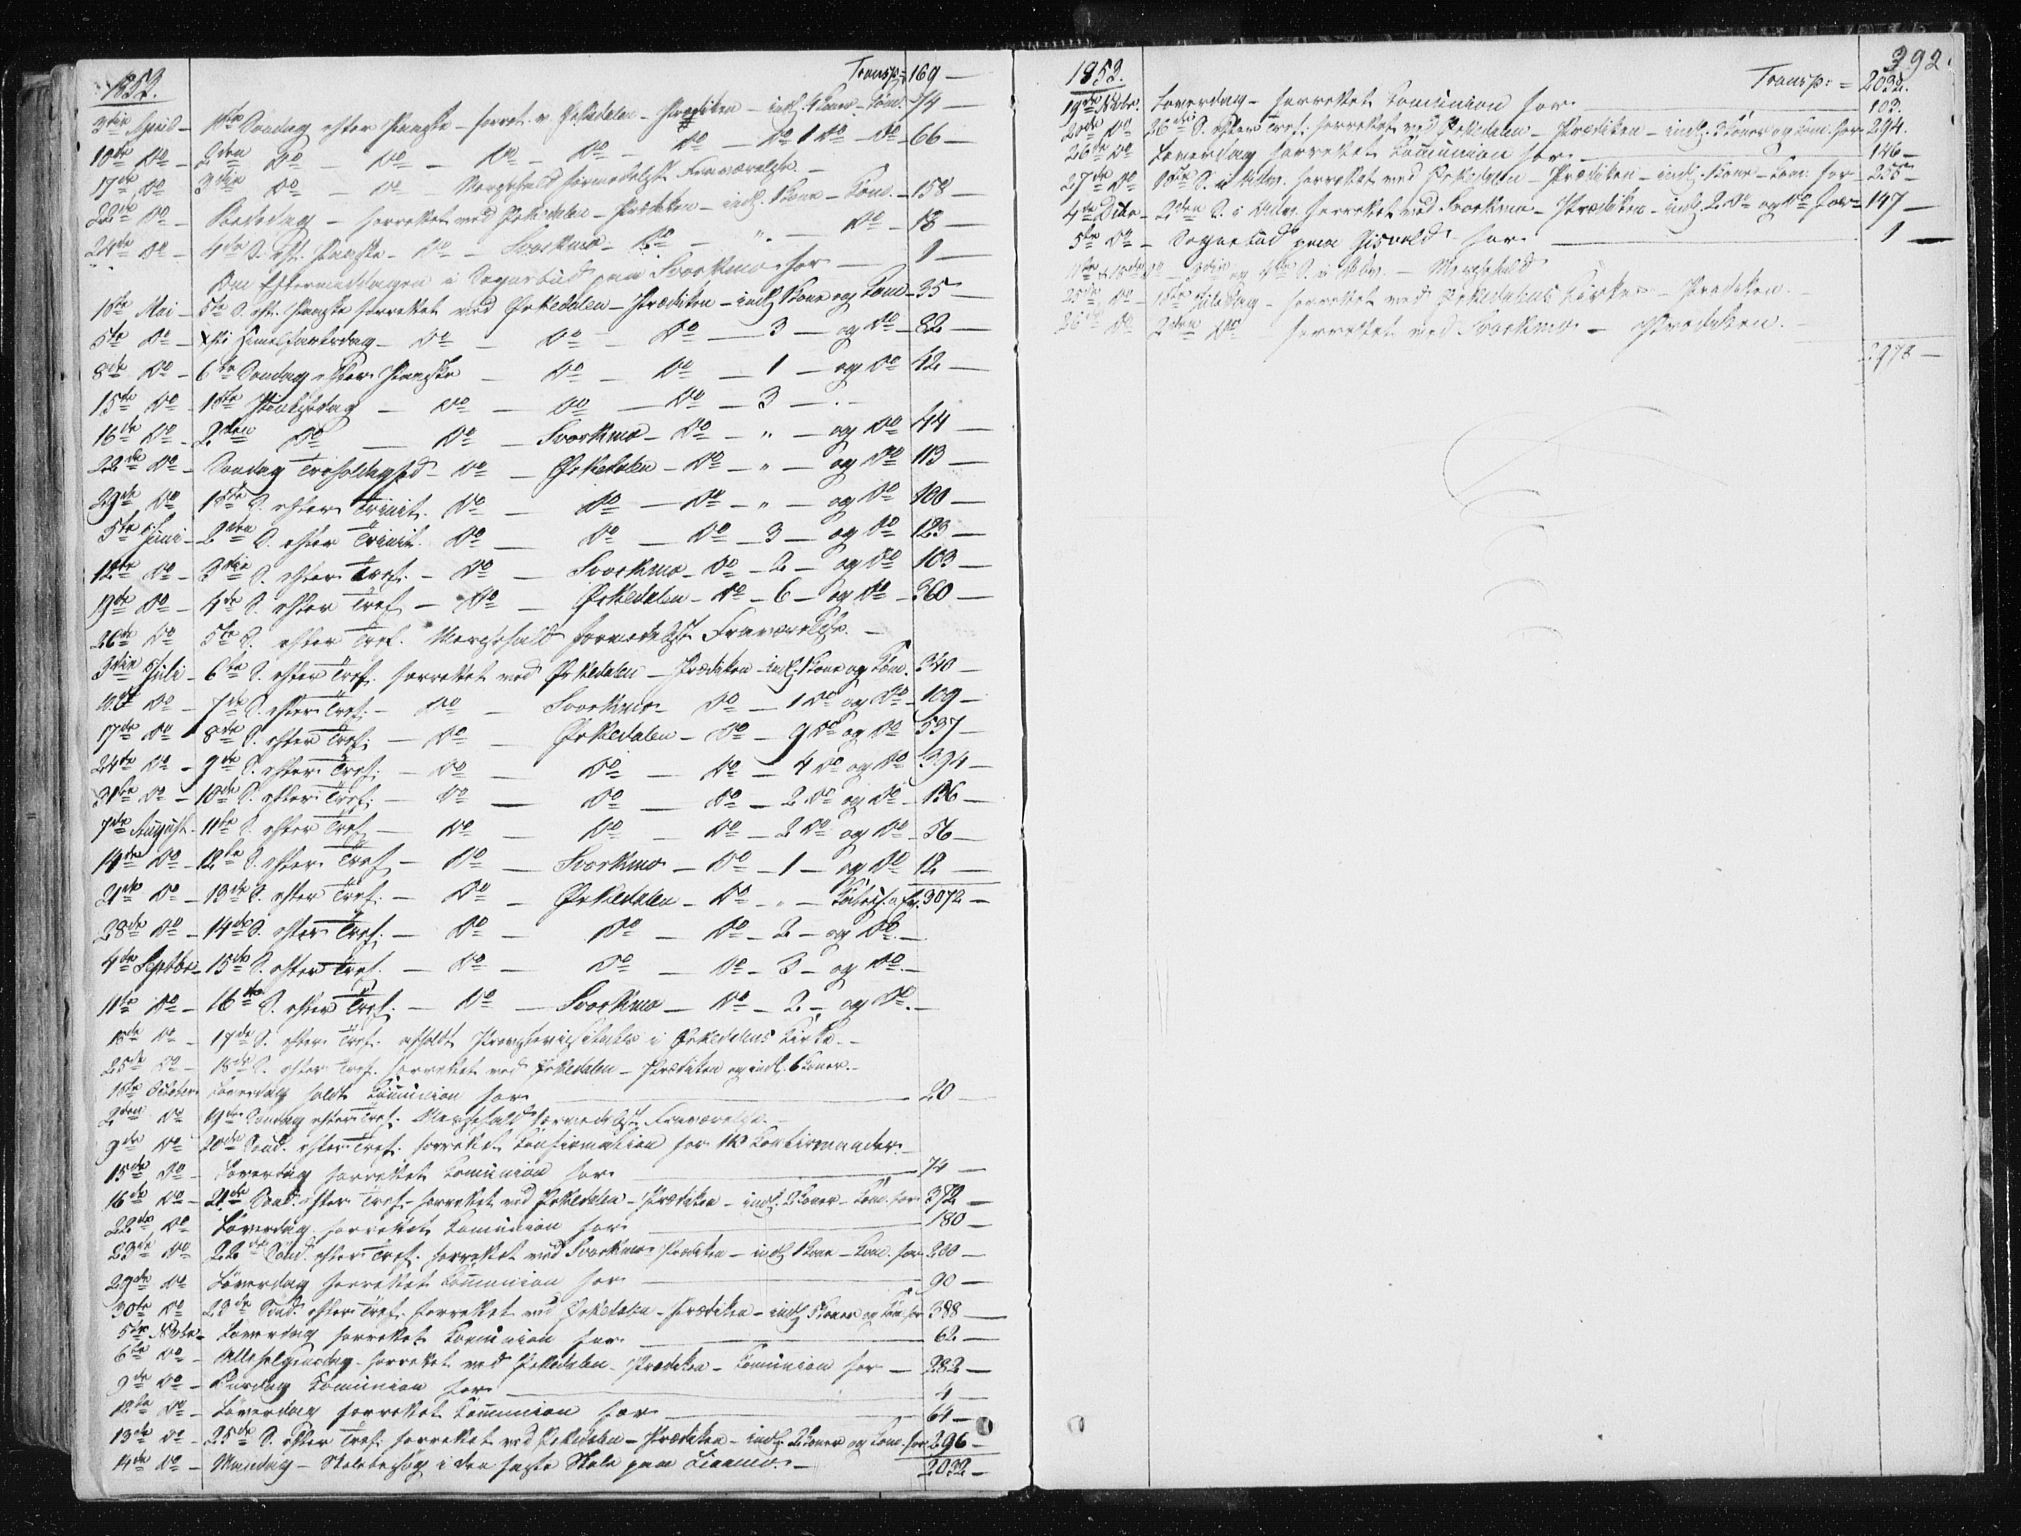 1853.
Transp: 169 —
3die April — 1ste Søndag efter Paaske — forret. v. Ørkedalen — Prædiken — indl. 4 Koner — Com. 74 —
10de Do — 2den Do — Do — Do — Do — Do — Do 1 Do — Do — 66 —
17de Do — 3die Do — Do Messefald formedelst Fraværelse. —
22de Do — Bededag — forrettet ved Ørkedalen — Prædiken — indl. 1 Kone — Com. — 158 —
24de Do — 4de S. eft. Paaske — Do — Svorkmo — Do — „ — Do — 18 —
Om Eftermiddagen i Sognebud paa Svorkmo for — 1 —
1ste Mai — 5te S. eft. Paaske forrettet ved Ørkedalen — Prædiken — indl. 1 Kone og Com — 35 —
5te Do — Xsti Himelfartsdag — Do — Do — Do — 3 — og Do — 82 —
8de Do — 6te Søndag efter Paaske — Do — Do — 1 — og Do 42 —
15de Do — 1ste Pintsedag — Do — Do — Do — 3 —
16de Do — 2den Do — Do — Svorkmo — Do — „ — og Do 44 —
22de Do — Søndag Trefoldighed — Do — Ørkedalen — Do — „ — og Do 113 —
29de Do — 1ste S. efter Trinit. Do — Do — Do — „ — og Do 100 —
5te Juni — 2den S. efter Trinit. Do — Do — Do — 3 — og Do 123 —
12te Do — 3die S. efter Tref. — Do — Svorkmo — Do — 2 — og Do 103 —
19de Do — 4de S. efter Tref — Do — Ørkedalen — Do — 6 — og Do — 360 —
26de Do 5te S. efter Tref. Messefald formedelst Fraværelse. —
3die Juli — 6te S. efter Tref. forrettet ved Ørkedalen — Prædiken — indl. 1 Kone og Com. — 340 —
10de Do — 7de S. efter Tref: — Do — Svorkmo Do — 1 Do og Do — 109 —
17de Do 8de S. efter Tref: — Do — Ørkedalen — Do — 9 Do og Do 537 —
24de Do — 9de S. efter Tref: — Do — Do — Do — 4 Do og Do 394 —
31te Do — 10de S. efter Tref: — Do — Do — Do — 2 Do og Do — 136 —
7de August — 11te S. efter Tref — Do — Do — Do — 2 Do og Do — 56 —
14de Do — 12te S. efter Tref — Do — Svorkmo — Do — 1 — og Do 12 —
21de Do — 13de S. efter Tref. — Do — Ørkedalen — Do — „ — 3072 —
28de Do — 14de S. efter Tref. — Do — Do — Do — 2 — og Do. —
4de Septbr — 15de S. efter Tref. — Do — Do — Do — 3 — og Do. —
11te Do — 16de S. efter Tref. — Do — Svorkmo — Do — 2 — og Do. —
18de Do — 17de S. efter Tref. afholdt Provstevisitats i Ørkedalens Kirke. —
25de Do — 18de S. efter Tref. forrettet ved Ørkedalen — Prædiken og indl. 6 Koner. —
1ste October Løverdag holdt Comunion for — 20 —
2den Do 19de Søndag efter Tref. Messefald formedelst Fraværelse. —
9de Do 20de Sønd. efter Tref. forrettet Confirmation for Confirmander. —
15de Do — Løverdag forrettet Comunion for — 74 —
16de Do — 21de Sønd. efter Tref. forrettet ved Ørkedalen — Prædiken — indl. 2 Koner — Com. for 372 —
22de Do Løverdag forrettet Comunion for — 180 —
23de Do 22de Sønd. efter Tref. forrettet ved Svorkmo Prædiken — indl. 1 Kone — Com. for 200 —
29de Do Løverdag forrettet Comunion for — 90 —
30te Do 23de Sønd. efter Tref. forrettet ved Ørkedalen — Prædiken — indl. Koner og Com. for 388 —
5te Novbr — Løverdag forrettet Comunion for — 62 —
6te Do — Allehelgensdag forrettet ved Ørkedalen — Prædiken — Comunion for — 282 —
9de Do — Comunion for — 4 —
12te Do — Løverdag forrettet Comunion for — 64 —
13de Do — 25de S. efter Tref. forrettet ved Ørkedalen — Prædiken — indl. 2 Koner og Com. for 296 —
14de Do — Mandag — Skolebesøg i den faste Skole paa —
2032 —
392.
1853.
Transp: = 2032.
19de Novbr. Løverdag — forrettet Comunion for 103.
20de Do 26de S. efter Tref. forrettet ved Ørkedalen — Prædiken — indl. 3 Koner og Com. for 294.
26de Do Løverdag forrettet Comunion for — 146 —
27de Do 1ste S. i Adv. forrettet ved Ørkedalen — Prædiken — indl. 1 Kone — Com. for — 255 —
4de Dcbr — 2den S. i Adv. forrettet ved Svorkmo — Prædiken — indl. 2 Do og Do for 147 —
5te Do — Sognebud paa Gisvold for — 1 —
11te & 18de Do — 3die og 4de S. i Adv. — Messefald
25de Do — 1ste Juledag — forrettet ved Ørkedalens Kirke — Prædiken. —
26de Do 2den Do forrettet ved Svorkmo — Prædiken. —
2978 —